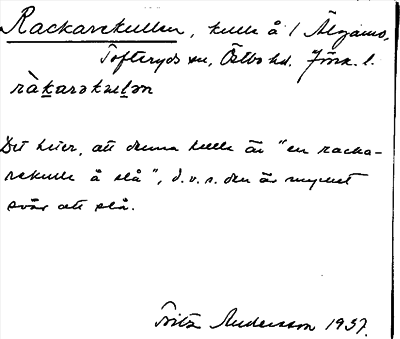 Rackarekullen, kulle å 1 Älgamo,
Tofteryds sn, Östbo hd. Jönk. l.
ràkarəkuḷən
Det heter, att denna kulle är "en racka-
rekulle å slå", d.v.s. den är mycket
svår att slå.
Fritz Andersson 1937.